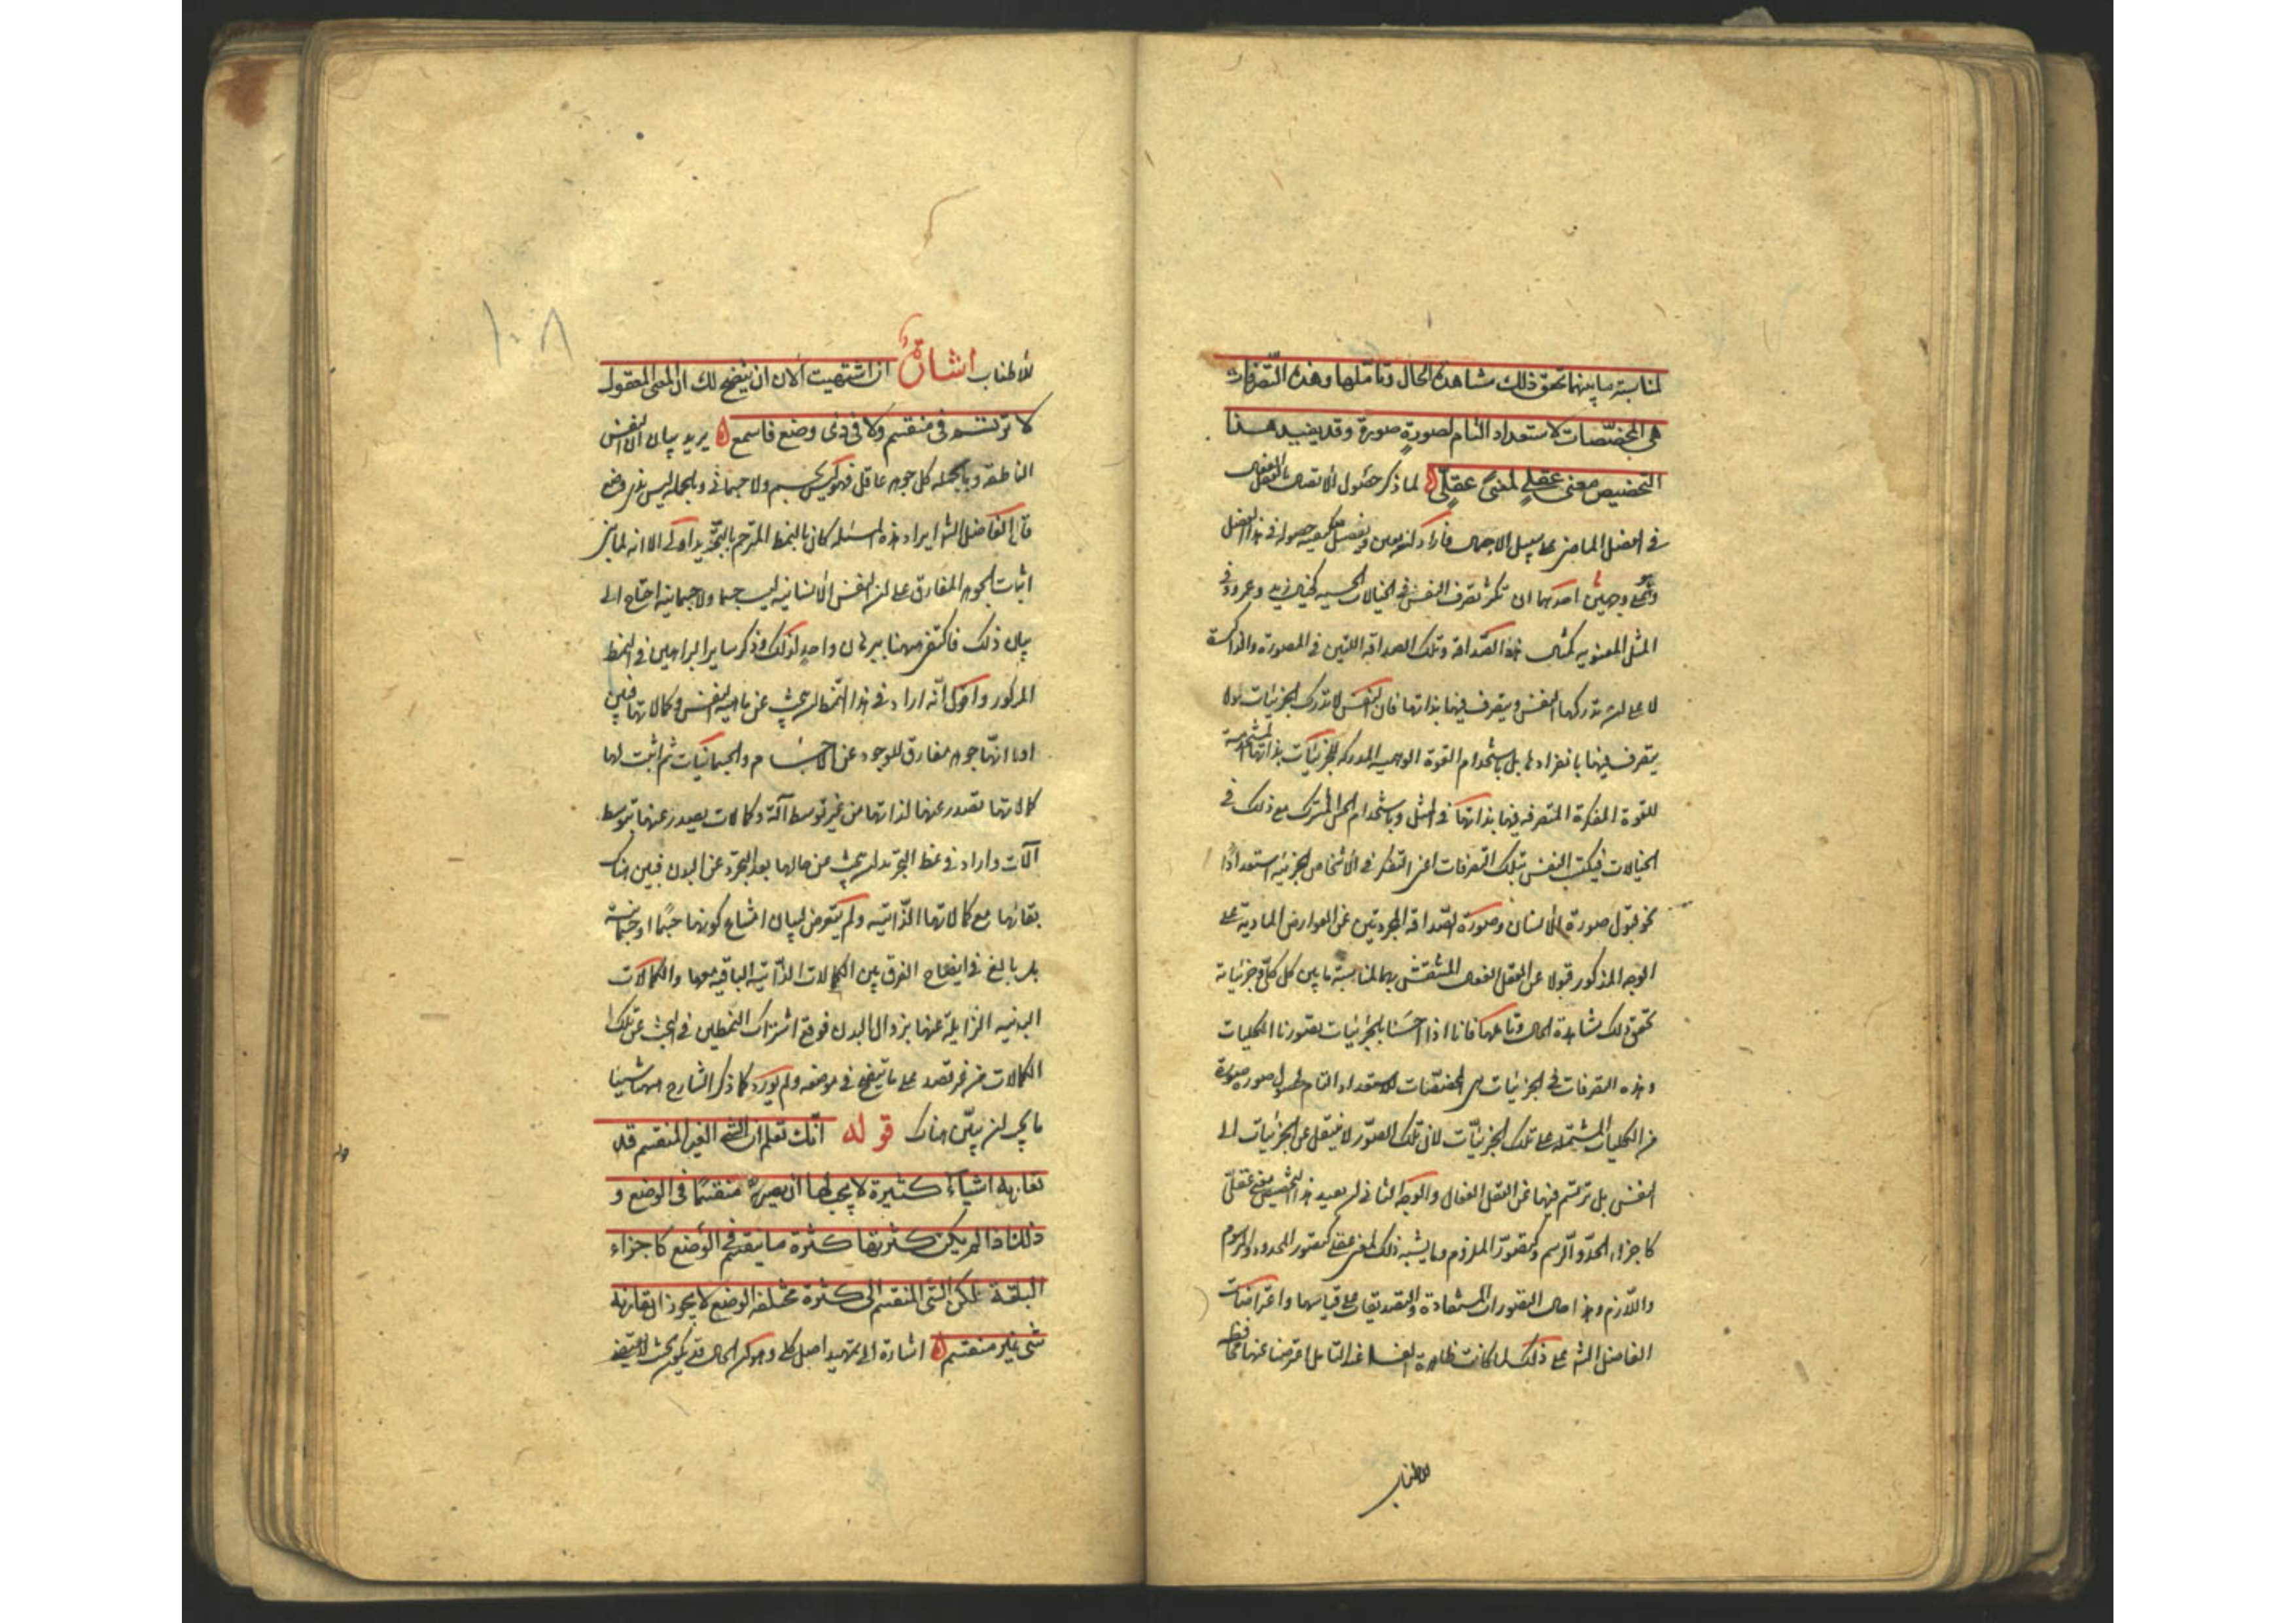 لمناسبة ما بينهما تحقق ذلك مشاهدة الحال وتأملها وهذه التصرفات
هي المخصّصات لاستعداد التام لصورةٍ صورة وقد يفيد هذا
التخصيص معنى عقليٍ لمعنى عقليّ ه لما ذكر حصول الاتصال بالعقل الفعال
في الفصل الماضى على سبيل الاجمال فاراد ان يبين ويفصل كيفيه حصوله فى هذا الفصل
وهو على وجهين احدهما ان تكثر تصرف النفس فى الخيالات الحسيه كخيال زيد وعمرو وفى
المثل المعنويه كمثال هذه الصداقة وتلك الصداقه اللتين فى المصورة والذاكرة
لا على ان تدركها النفس ويتصرف فيها بذاتها فان النفس لا تدرك الجزئيات ولا
يتصرف فيها بانفرادها بل باستخدام القوة الوهميه المدركه للجزئيات بذاتها المستخدمة
للقوة المفكرة المتصرفه فيها بذاتها فى المثل وباستخدام الحس المشترك مع ذلك فى
الخيالات فيكتسب النفس بتلك التصرفات اعنى التفكر فى الاشخاص الجزئيه استعدادا
نحو قبول صورة الانسان وصورة الصداقه المجردتين عن العوارض المادية على
الوجه المذكور قبولا عن العقل الفعال المنتقش بهما لمناسبة ما بين كل كلى وجزئياته
تحقق ذلك مشاهدة الحال وتاملها فانا اذا احسسنا بالجزئيات تصورنا الكليات
وهذه التصرفات فى الجزئيات هى المخصّصات للاستعداد التام لحصول صوره صورة
من الكليات المشتمله على تلك الجزئيات لان تلك الصوّر لا ينتقل عن الجزئيات الى
النفس بل ترتسم فيها عن العقل الفعال والوجه الثانى ان يفيد هذا التخصيص معنى عقلىّ
كاجزاء الحدّ والرسم وكتصوّر الملزوم وما يشبه ذلك لمعنى عقلى كتصور المحدود والمرسوم
واللّازم وهذا حال التصورات المستفادة والتصديقات على قياسها واعتراضات
الفاضل الش على ذلك لما كانت ظاهرة الفساد عند التامل اعرضنا عنها مخافة
للاطناب
١٠٨
للاطناب اشارةٌ ان اشتهيت الان ان يتضح لك ان المعنى المعقول
لا يرتسم فى منقسم ولا فى ذى وضع فاسمع ه يريد بيان ان النفس
الناطقه وبالجملة كل جوهر عاقل فهو ليس بجسم ولا جسمانى وبالجمله ليس بذى وضع
قال الفاضل الش ايراد هذه المسئله كان بالنمط المترجم بالتجريد اولى الا انه لما بنى
اثبات الجوهر المفارق على ان النفس الانسانيه ليست جسما ولا جسمانيه احتاج الى
بيان ذلك فاكتفى ههنا ببرهان واحدٍ لذلك وذكر ساير البراهين فى النمط
المذكور واقول انّه اراد فى هذا النّمط ان يبحث عن ماهية النفس وكمالاتها فبين
اولا انّها جوهر مفارق الوجود عن الاجسام والجسمانيات ثم اثبت لها
كمالاتها تصدر عنها لذاتها من غير توسط آلة وكمالات يصدر عنها بتوسط
آلات واراد فى نمط التجريد ان يبحث عن حالها بعد التجرّد عن البدن فبين هناك
بقائها مع كمالاتها الذّاتيّه ولم يتعرض لبيان امتناع كونها جسمًا او جسمانية
بل بالغ فى ايضاح الفرق بين الكمالات الذّاتيه الباقيه معها والكمالات
البدنيه الزايلة عنها بزوال البدن فوقع اشتراك النمطين فى البحث عن تلك
الكمالات من غير قصد على ما يتضح فى موضعه ولم يورد كما ذكر الشارح ههنا شيئا
ما يجب ان يبيّن هناك قوله انّك تعلم ان الشى الغير المنقسم قد
تقارنه اشياءٌ كثيرة لا يجب لها ان يصير منقسمًا فى الوضع و
ذلك اذا لم يكن كثرتها كثرة ما ينقسم فى الوضع كاجزاء
البلقة لكن الشئ المنقسم الى كثرة مختلفة الوضع لا يجوز ان يقارنه
شى غير منقسم ه اشارة الى تمهيد اصل كلى وهو ان الحال قد يكون بحيث لا يقتضى